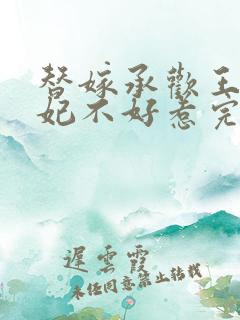 替嫁承歡王
妃不好惹完
遲雲霞
未经同意禁止转载